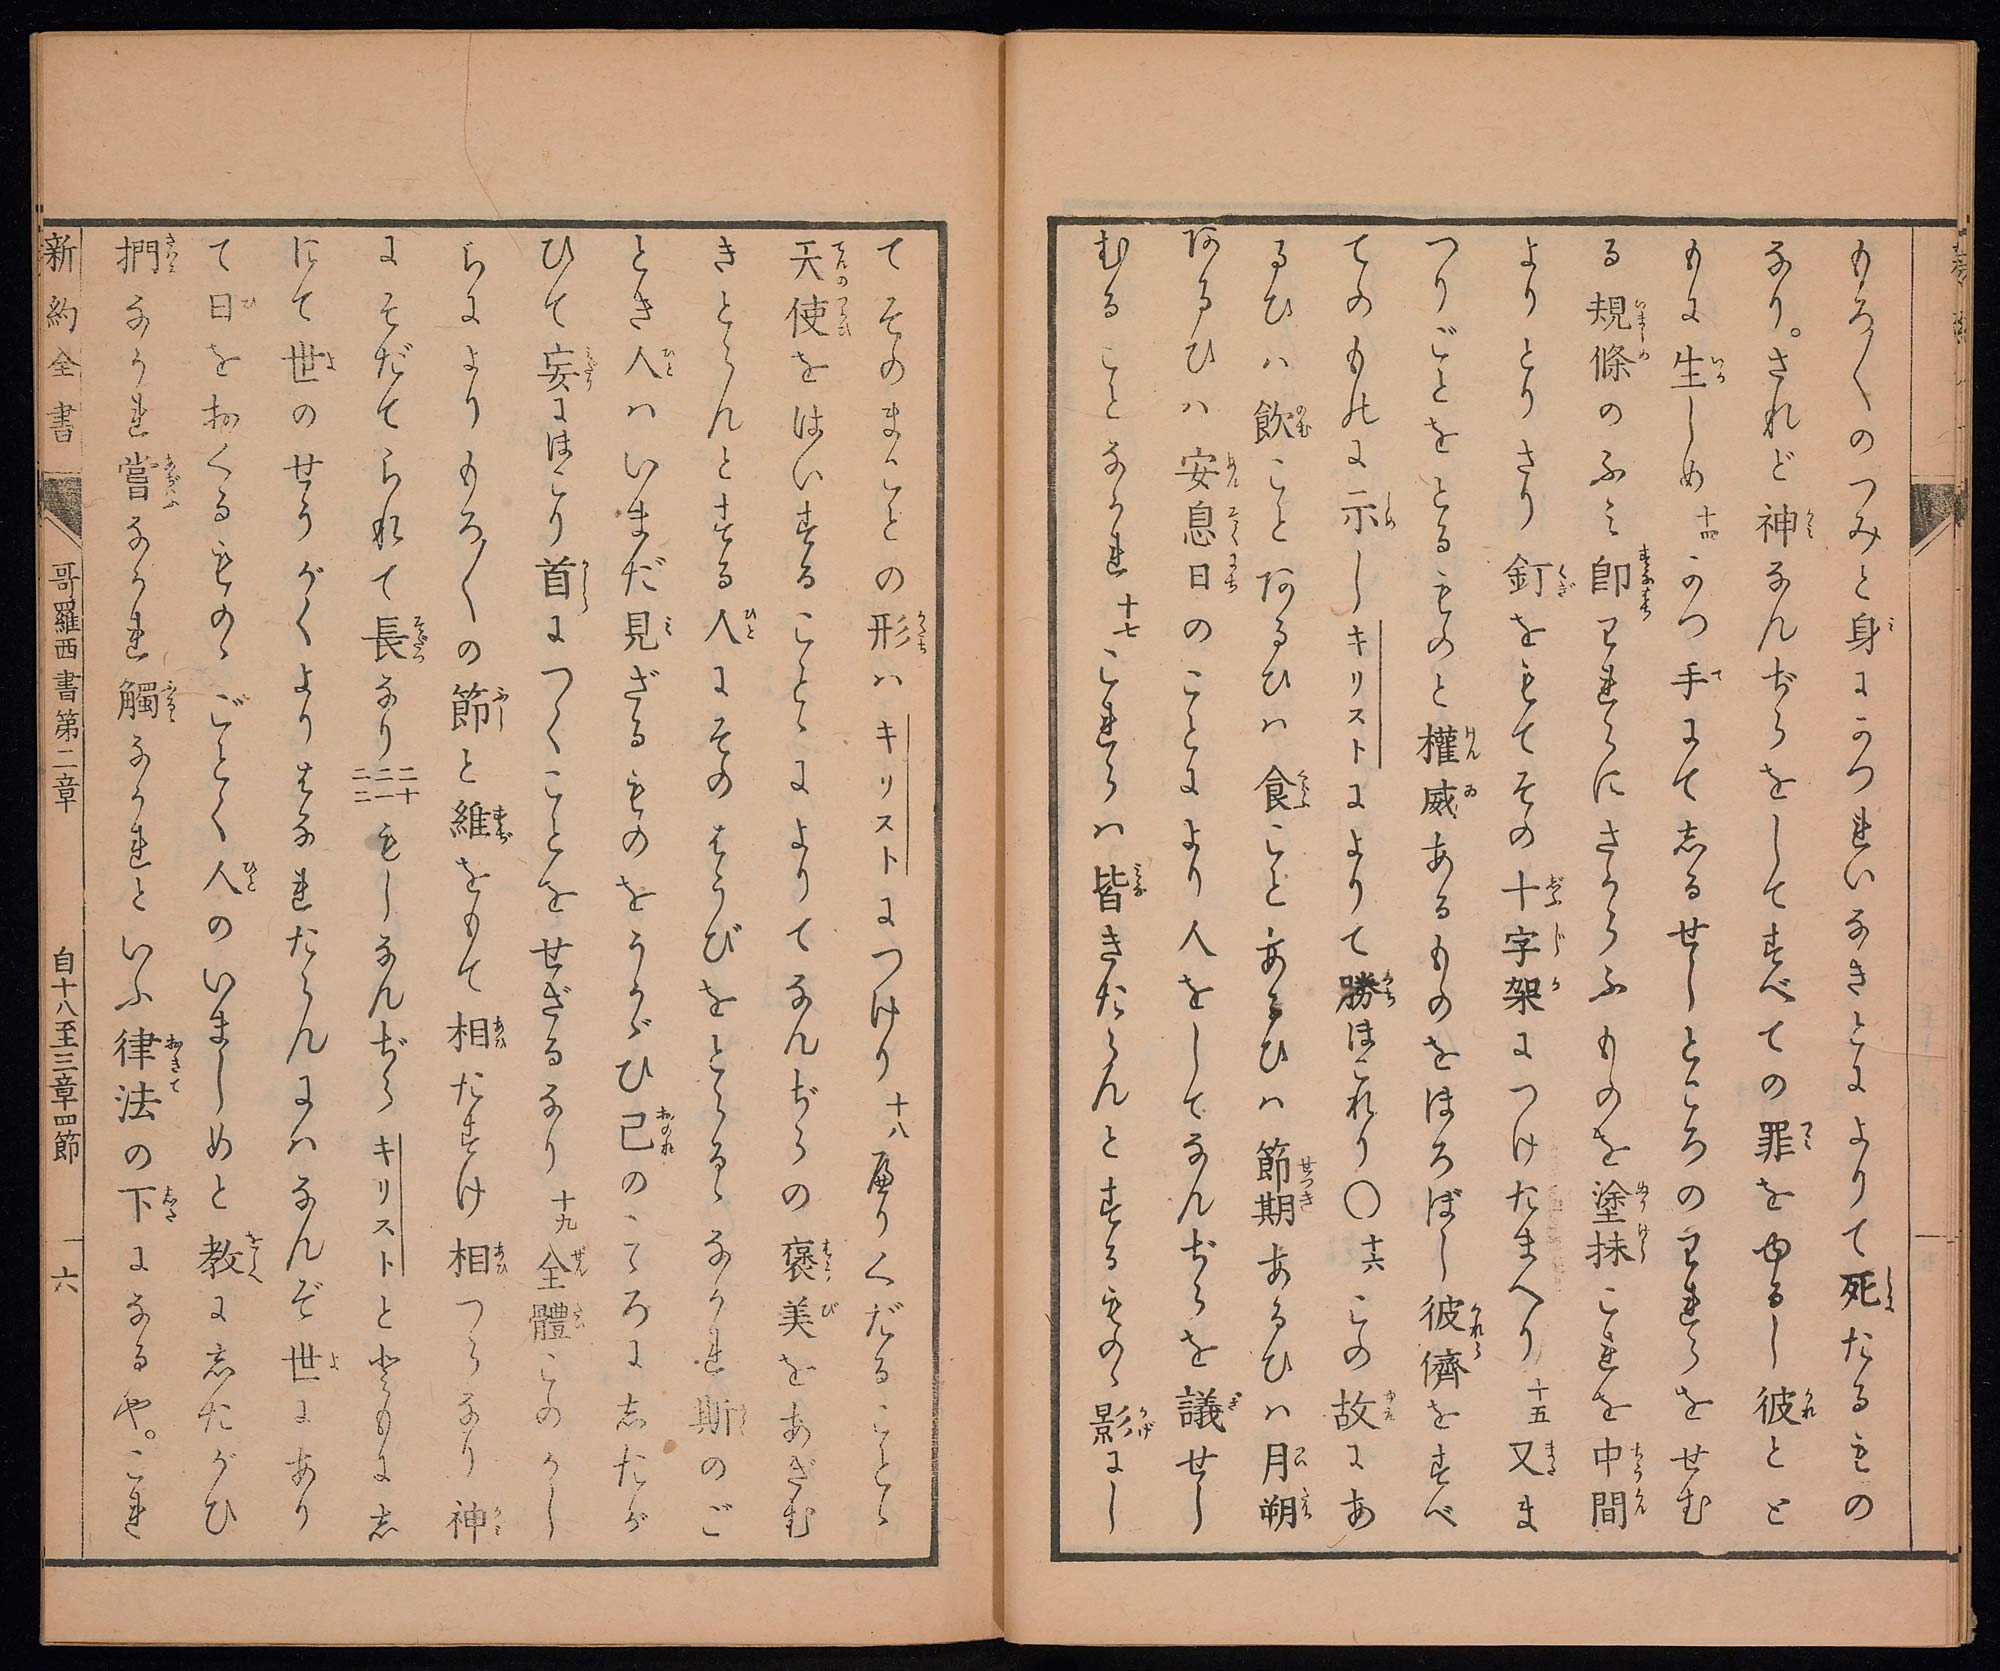 もろ〳〵のつみと身にかつれいなきとによりて死たるもの
なり。されど神なんぢらをして すべての罪をゆるし彼とと
もに生しめ 十四 かつ手にて志るせしところのわれらをせむ
る規條のふみ即われらにさからふものを塗抹これを中間
よりとりさり釘をもてその十字架につけたまへり 十五 又ま
つりごとをとるものと權威あるものをほろぼし彼儕をすべ
てのものに示しキリストによりて勝ほこれり〇十六 この故にあ
るひハ飲こと あるひハ食こと あるひハ節期あるひハ月朔
あるひハ安息日のことにより人をしてなんぢらを議せし
むることなかれ 十七 これらハ皆きたらんとするものゝ影にし
てそのまことの形ハキリストにつけり 十八 謙りくだることゝ
天使をはいすることゝによりてなんぢらの褒美をあざむ
きとらんとする人にそのはうびをとらるゝなかれ斯のご
とき人ハいまだ見ざるものをうかゞひ己のこゝろに志たが
ひて妄にほこり首につくことをせざるなり 十九 全體このかし
らによりもろ〳〵の節と維をもて相たすけ相つらなり神
にそだてられて長なり 二十 二一 二二 もしなんぢらキリストと偕に志
にて世のせうがくよりはなれたらんにハなんぞ世にあり
て日をおくるものゝごとく人のいましめと教に志たがひ
捫なかれ嘗なかれ觸なかれといふ律法の下になるや。これ
新約全書 哥羅西書第二章 自十八至三章四節 六